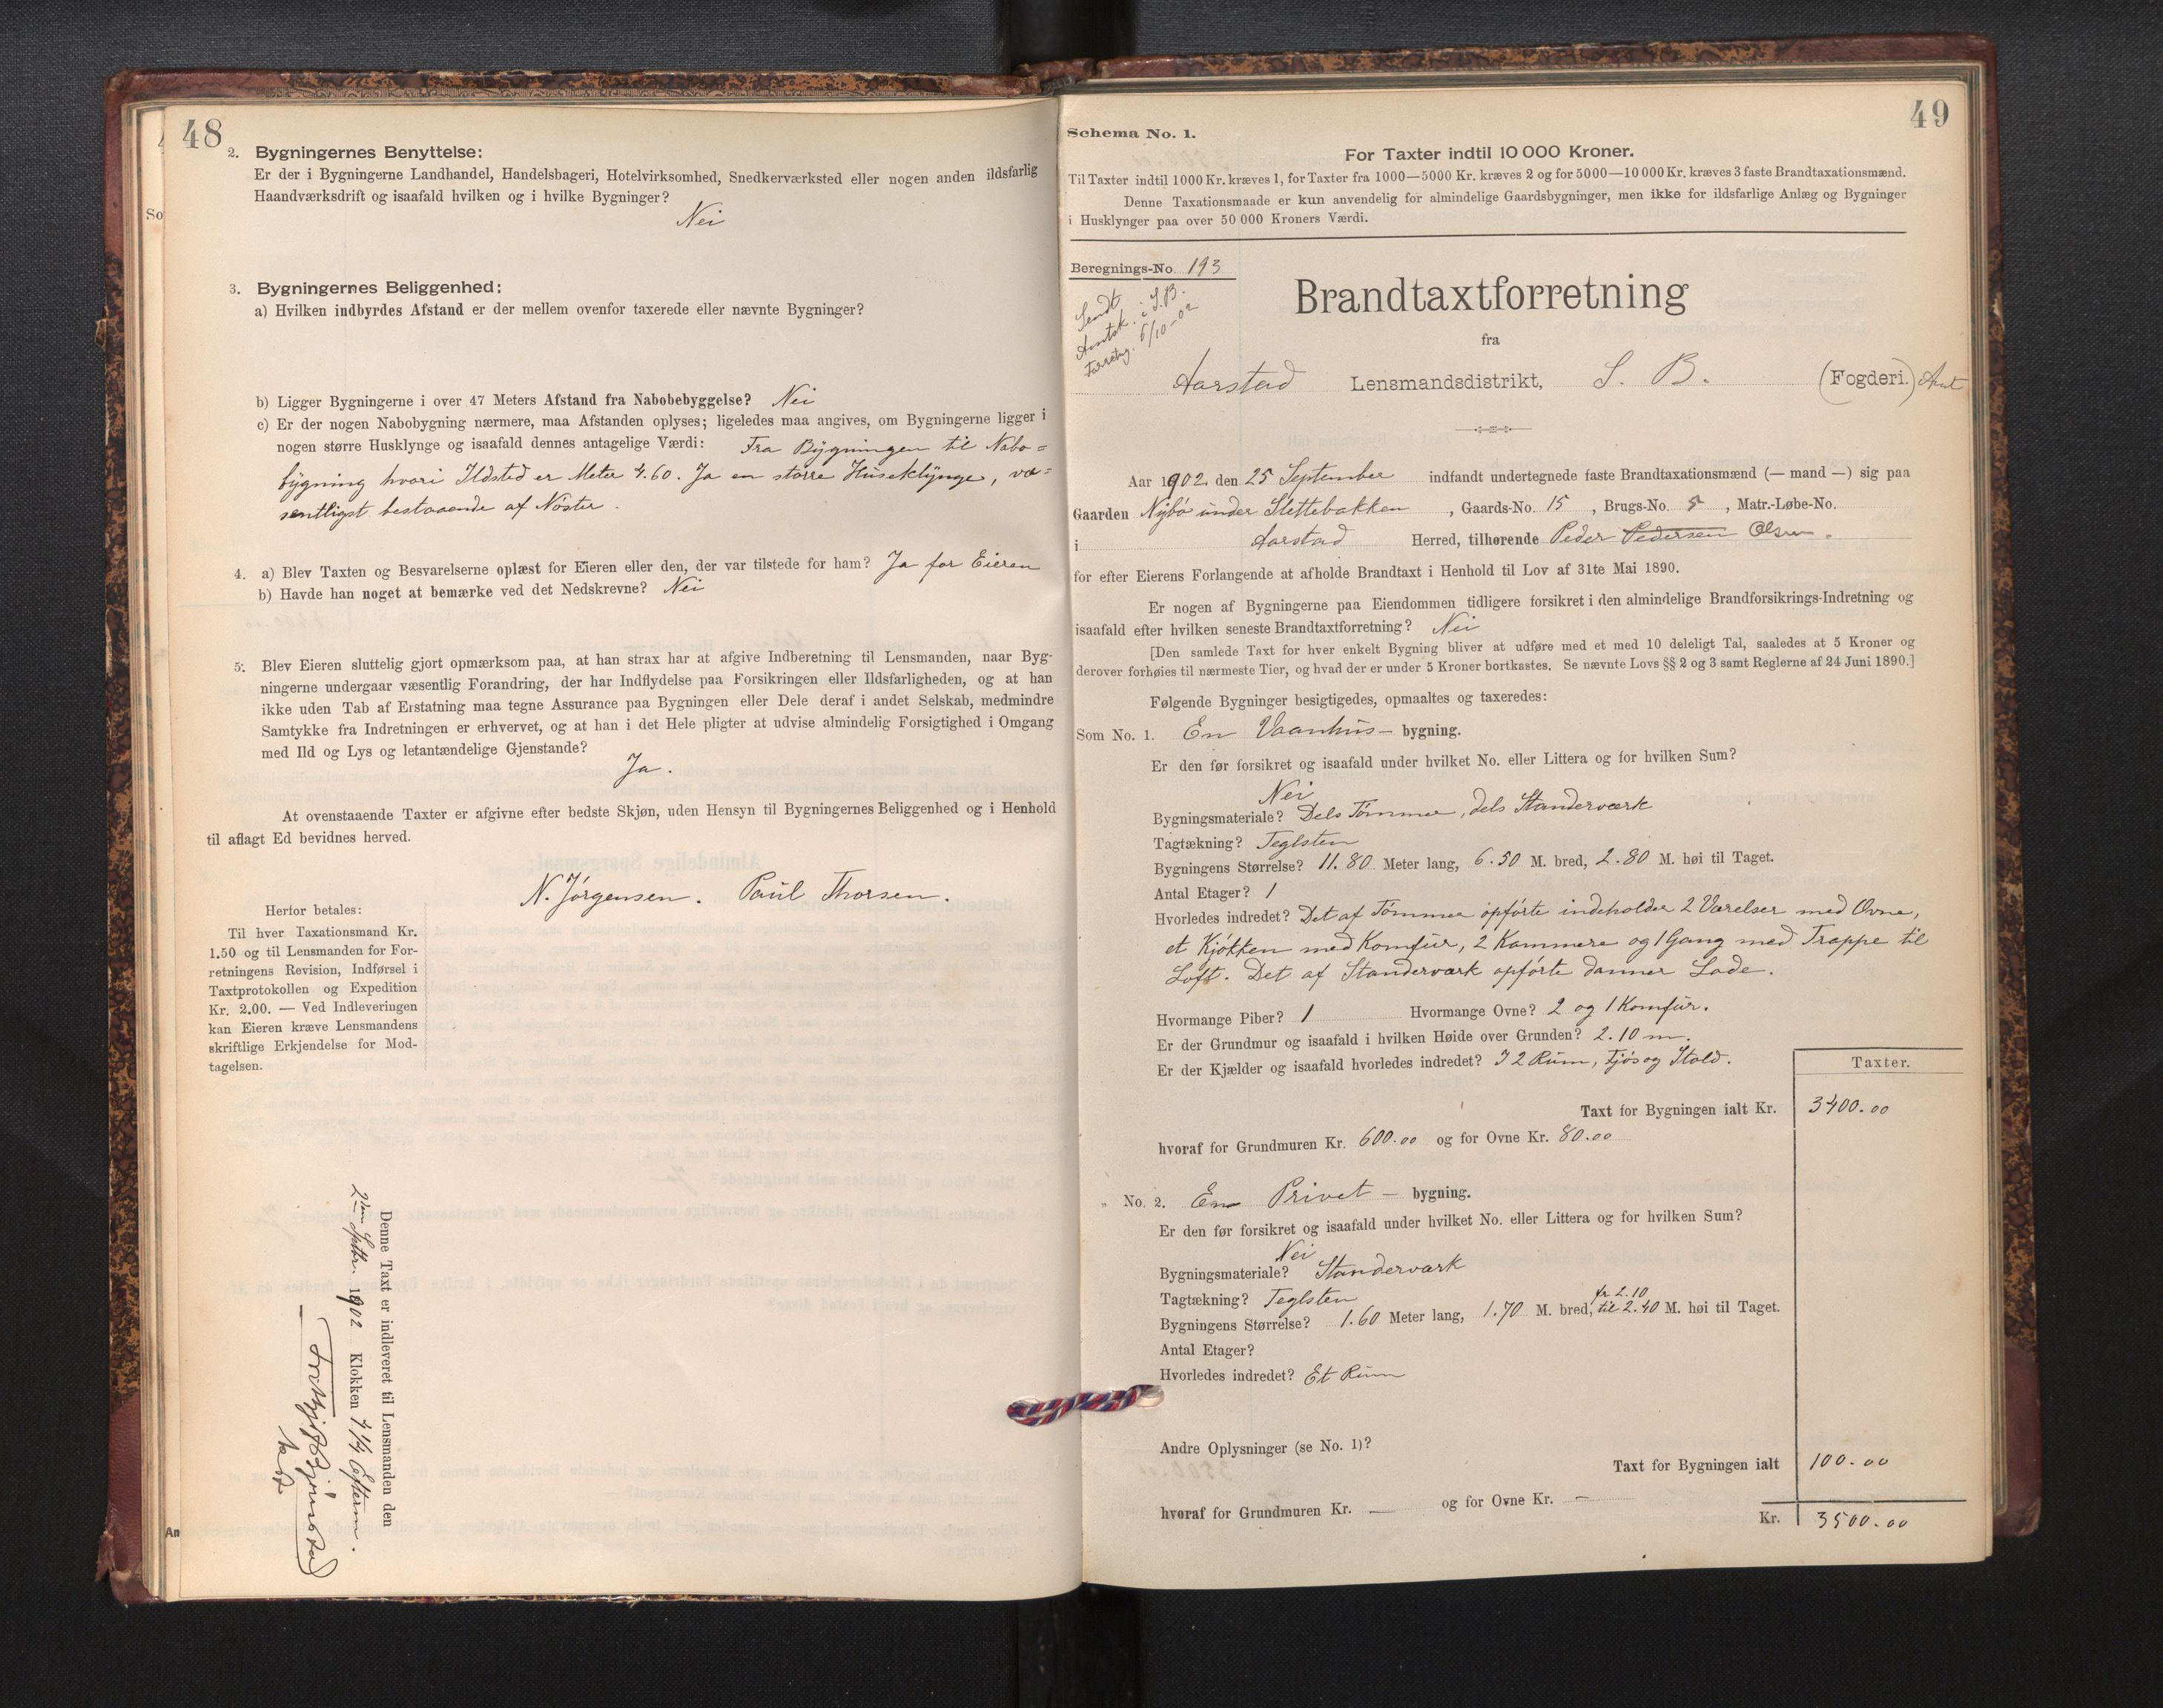 48
2. Bygningernes Benyttelse:
Er der i Bygningerne Landhandel, Handelsbageri, Hotelvirksomhed, Snedkerværksted eller nogen anden ildsfarlig
Haandværksdrift og isaafald hvilken og i hvilke Bygninger?
Nei
3. Bygningernes Beliggenhed:
a) Hvilken indbyrdes Afstand er der mellem ovenfor taxerede eller nævnte Bygninger?
b) Ligger Bygningerne i over 47 Meters Afstand fra Nabobebyggelse? Nei
c) Er der nogen Nabobygning nærmere, maa Afstanden oplyses; ligeledes maa angives, om Bygningerne ligger i
nogen større Husklynge og isaafald dennes antagelige Værdi: Fra Bygningen til Nabo=
bygning hvori Ildsted er Meter 4.60. Ja en større Huseklynge, væ=
sentligst bestaaende af Nöster.
4. a) Blev Taxten og Besvarelserne oplæst for Eieren eller den, der var tilstede for ham? Ja for Eieren
b) Havde han noget at bemærke ved det Nedskrevne? Nei
5. Blev Eieren sluttelig gjort opmærksom paa, at han strax har at afgive Indberetning til Lensmanden, naar Byg-
ningerne undergaar væsentlig Forandring, der har Indflydelse paa Forsikringen eller Ildsfarligheden, og at han
ikke uden Tab af Erstatning maa tegne Assurance paa Bygningen eller Dele deraf i andet Selskab, medmindre
Samtykke fra Indretningen er erhvervet, og at han i det Hele pligter at udvise almindelig Forsigtighed i Omgang
med Ild og Lys og letantændelige Gjenstande?
Ja.
At ovenstaaende Taxter er afgivne efter bedste Skjøn, uden Hensyn til Bygningernes Beliggenhed og i Henhold
til aflagt Ed bevidnes herved.
N. Jörgensen. Paul Thorsen.
Herfor betales:
Til hver Taxationsmand Kr.
1.50 og til Lensmanden for For-
retningens Revision, Indførsel i
Taxtprotokollen og Expedition
Kr. 2.00. — Ved Indleveringen
kan Eieren kræve Lensmandens
skriftlige Erkjendelse for Mod-
tagelsen.
Denne Taxt er indleveret til Lensmanden den
Septbr. 1902 Klokken 7 1/4 Efterm.
49
Schema No. 1.
For Taxter indtil 10 000 Kroner.
Til Taxter indtil 1000 Kr. kræves 1, for Taxter fra 1000—5000 Kr. kræves 2 og for 5000—10 000 Kr. kræves 3 faste Brandtaxationsmænd.
Denne Taxationsmaade er kun anvendelig for almindelige Gaardsbygninger, men ikke for ildsfarlige Anlæg og Bygninger
i Husklynger paa over 50 000 Kroners Værdi.
Beregnings-No. 193
Sendt
Amtsk. i S.B.
Forretng. 6/10-02
Brandtaxtforretning
fra
Aarstad Lensmandsdistrikt, S. B. (Fogderi.) Amt
Aar 1902 den 25 September indfandt undertegnede faste Brandtaxationsmænd (— mand —) sig paa
Gaarden Nybö under Slettebakken, Gaards-No. 15, Brugs-No. 5, Matr.-Løbe-No.
i Aarstad Herred, tilhørende Peder Pedersen Olsen.
for efter Eierens Forlangende at afholde Brandtaxt i Henhold til Lov af 31te Mai 1890.
Er nogen af Bygningerne paa Eiendommen tidligere forsikret i den almindelige Brandforsikrings-Indretning og
isaafald efter hvilken seneste Brandtaxtforretning? Nei
[Den samlede Taxt for hver enkelt Bygning bliver at udføre med et med 10 deleligt Tal, saaledes at 5 Kroner og
derover forhøies til nærmeste Tier, og hvad der er under 5 Kroner bortkastes. Se nævnte Lovs §§ 2 og 3 samt Reglerne af 24 Juni 1890.]
Følgende Bygninger besigtigedes, opmaaltes og taxeredes:
Som No. 1. En Vaanhus- bygning.
Er den før forsikret og isaafald under hvilket No. eller Littera og for hvilken Sum?
Nei
Bygningsmateriale? Dels Tömmer, dels Standerværk
Tagtækning? Teglsten
Bygningens Størrelse? 11.80 Meter lang, 6.50 M. bred, 2.80 M. høi til Taget.
Antal Etager? 1
Hvorledes indredet? Det af Tömmer opförte indeholder 2 Værelser med Ovne,
et Kjökken med Komfur, 2 Kammere og 1 Gang med Trappe til
Loft. Det af Standerværk opförte danner Lade.
Hvormange Piber? 1 Hvormange Ovne? 2 og 1 Komfur.
Er der Grundmur og isaafald i hvilken Høide over Grunden? 2.10 m.
Er der Kjælder og isaafald hvorledes indredet? I 2 Rum, Fjös og Stald.
Taxter.
Taxt for Bygningen ialt Kr. 3400.00
hvoraf for Grundmuren Kr. 600.00 og for Ovne Kr. 80.00
„ No. 2. En Privet - bygning.
Er den før forsikret og isaafald under hvilket No. eller Littera og for hvilken Sum?
Nei
Bygningsmateriale? Standerværk
Tagtækning? Teglsten
Bygningens Størrelse? 1.60 Meter lang, 1.70 M. bred, fr 2.10 til 2.40 M. høi til Taget.
Antal Etager?
Hvorledes indredet? Et Rum
Andre Oplysninger (se No. 1)?
Taxt for Bygningen ialt 100.00
hvoraf for Grundmuren Kr. — og for Ovne Kr. —
Kr. 3500.00